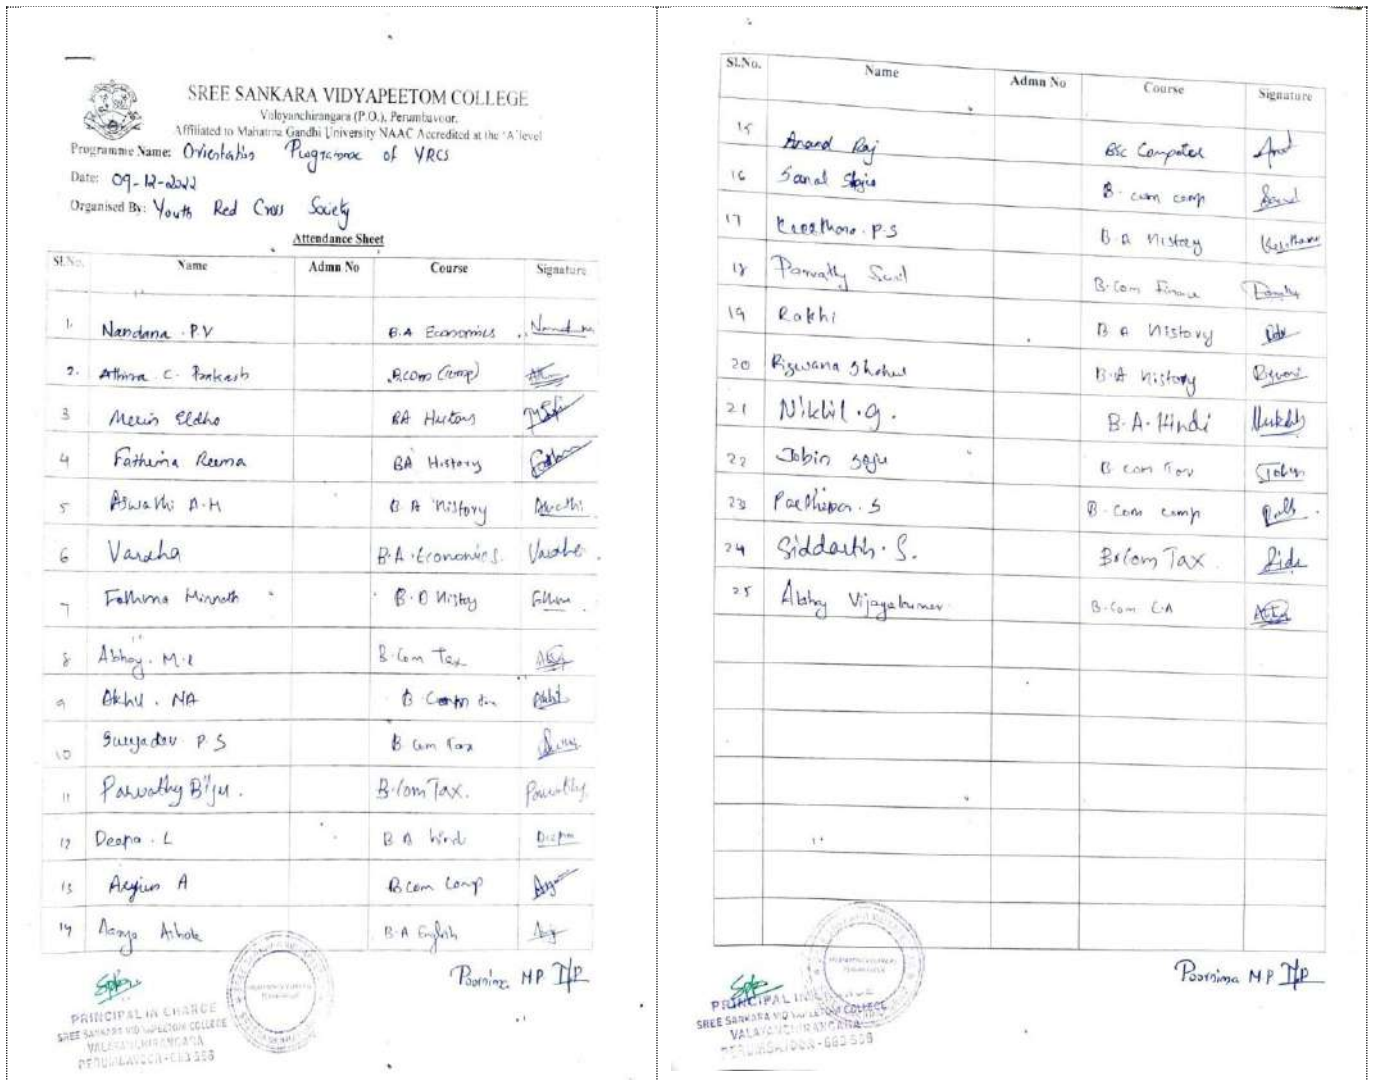 SREE SANKARA VIDYAPEETOM COLLEGE
Valayanchirangara (P.O.), Perumbavoor.
Affiliated to Mahatma Gandhi University NAAC Accredited at the 'A' level
Programme Name: Orientation Programme of YRCS
Date: 09-12-2022
Organised By: Youth Red Cross Society
Attendance Sheet
Sl.No. Name Admn No Course Signature
1. Nandana . P.V B.A Economics
2. Athira C. Prakash B.com (comp)
3 Merin Eldho BA History
4 Fathima Reema BA History
5 Aswathi A.M B A History Aswathi
6 Varsha B.A. Economics. Varsha
7 Fathima Minnath B.A History
8 Abhay. M.R B.Com Tax
9 Akhil. NA B Com Akhil
10 Suryadev P.S B com Tax
11 Parvathy Biju. B.Com Tax. Parvathy
12 Deepa . L B A hindi Deepa
13 Arjun A B Com Comp
14 Ashok B.A English
PRINCIPAL IN CHARGE
SREE SANKARA VIDYAPEETOM COLLEGE
VALAYANCHIRANGARA
PERUMBAVOOR-683 556
Poornima M P
Sl.No. Name Admn No Course Signature
15 Anand Raj BSc Computer
16 Sanal B. com comp Sanal
17 Keerthana. P.S B A History Keerthana
18 Parvathy Sunil B.Com Finance
19 Rakhi B A History
20 Riswana Shahul B.A History
21 Nikhil . G. B.A. Hindi
22 Jobin Saju B com Tax Jobin
23 S B. Com comp
24 Siddarth. S. B.Com Tax
25 Abhay Vijayakumar B.Com C.A
PRINCIPAL IN CHARGE
SREE SANKARA VIDYAPEETOM COLLEGE
VALAYANCHIRANGARA
PERUMBAVOOR-683 556
Poornima M P